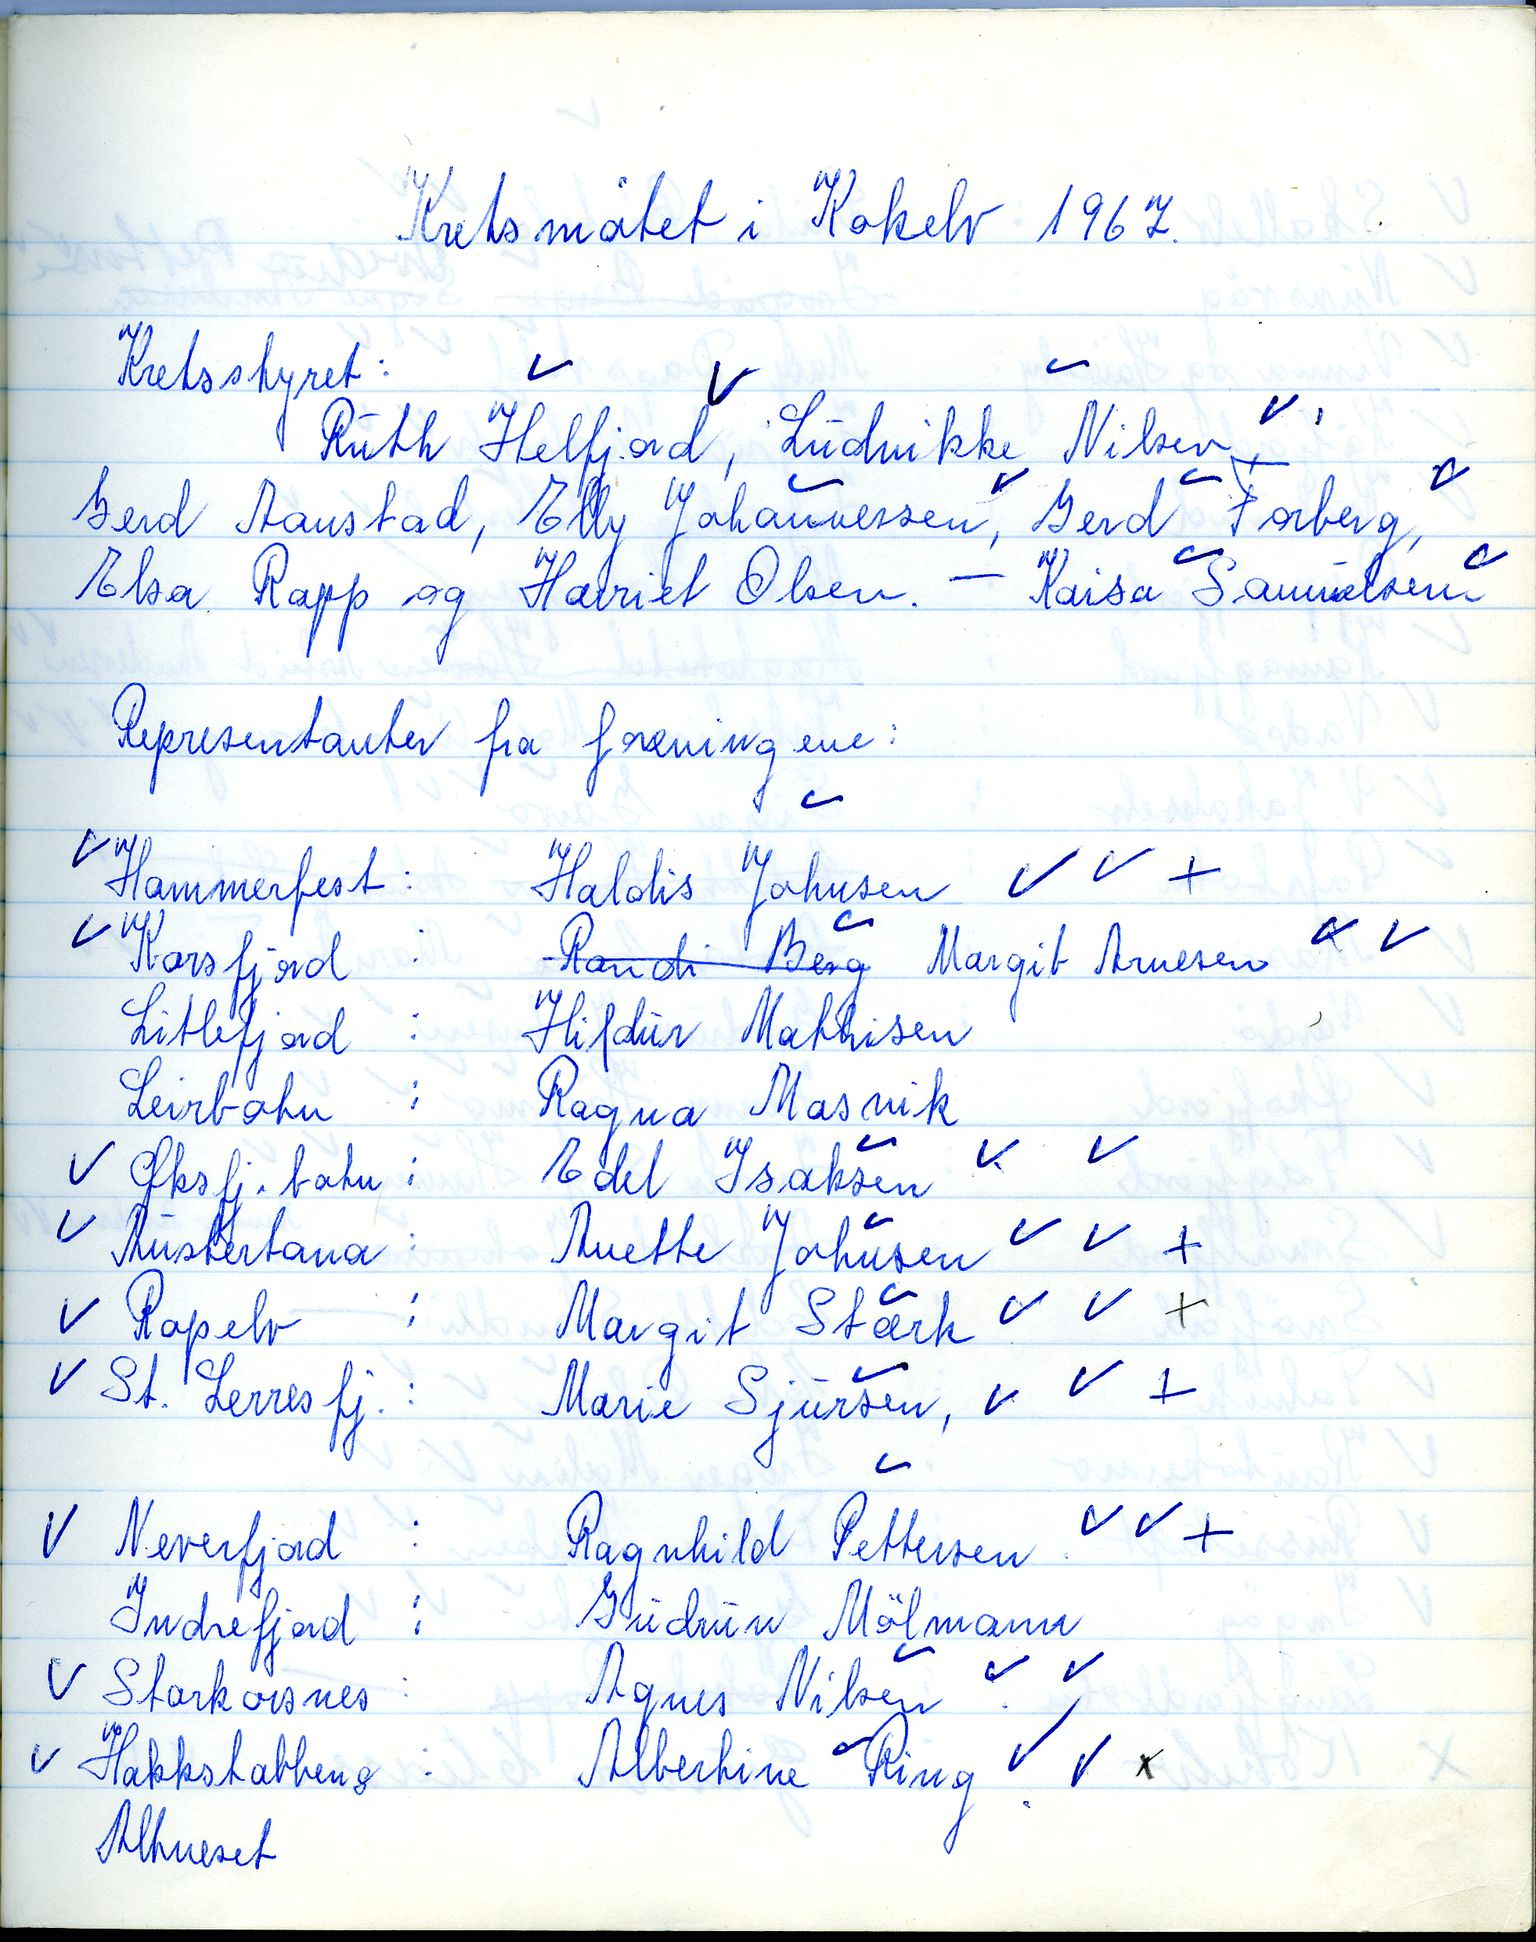 Kretsmøtet i Kokelv 1967.
Kretsstyret: ✓ ✓ ✓
Ruth Helfjord, Ludvikke Nilsen, ✓
Gerd Aanstad, Elly Johannessen, Gerd Forberg, ✓
Elsa Rapp og Harriet Olsen. — Kaisa Samuelsen ✓
Representanter fra foreningene:
✓ Hammerfest : Haldis Johnsen ✓ ✓ +
✓ Korsfjord : Randi Berg Margit Arnesen ✓ ✓
Litlefjord : Hildur Mathisen
Leirbotn : Ragna Masvik
✓ Øksfj. botn : Edel Isaksen ✓ ✓
✓ Austertana : Anette Johnsen ✓ ✓ +
✓ Ropelv : Margit Stærk ✓ ✓ +
✓ St. Lerresfj. : Marie Sjursen, ✓ ✓ +
✓ Neverfjord : Ragnhild Pettersen ✓ ✓ +
Indrefjord : Gudrun Mölmann
✓ Storkorsnes : Agnes Nilsen ✓ ✓
✓ Hakkstabben : Albertine Ring ✓ ✓ x
Altneset